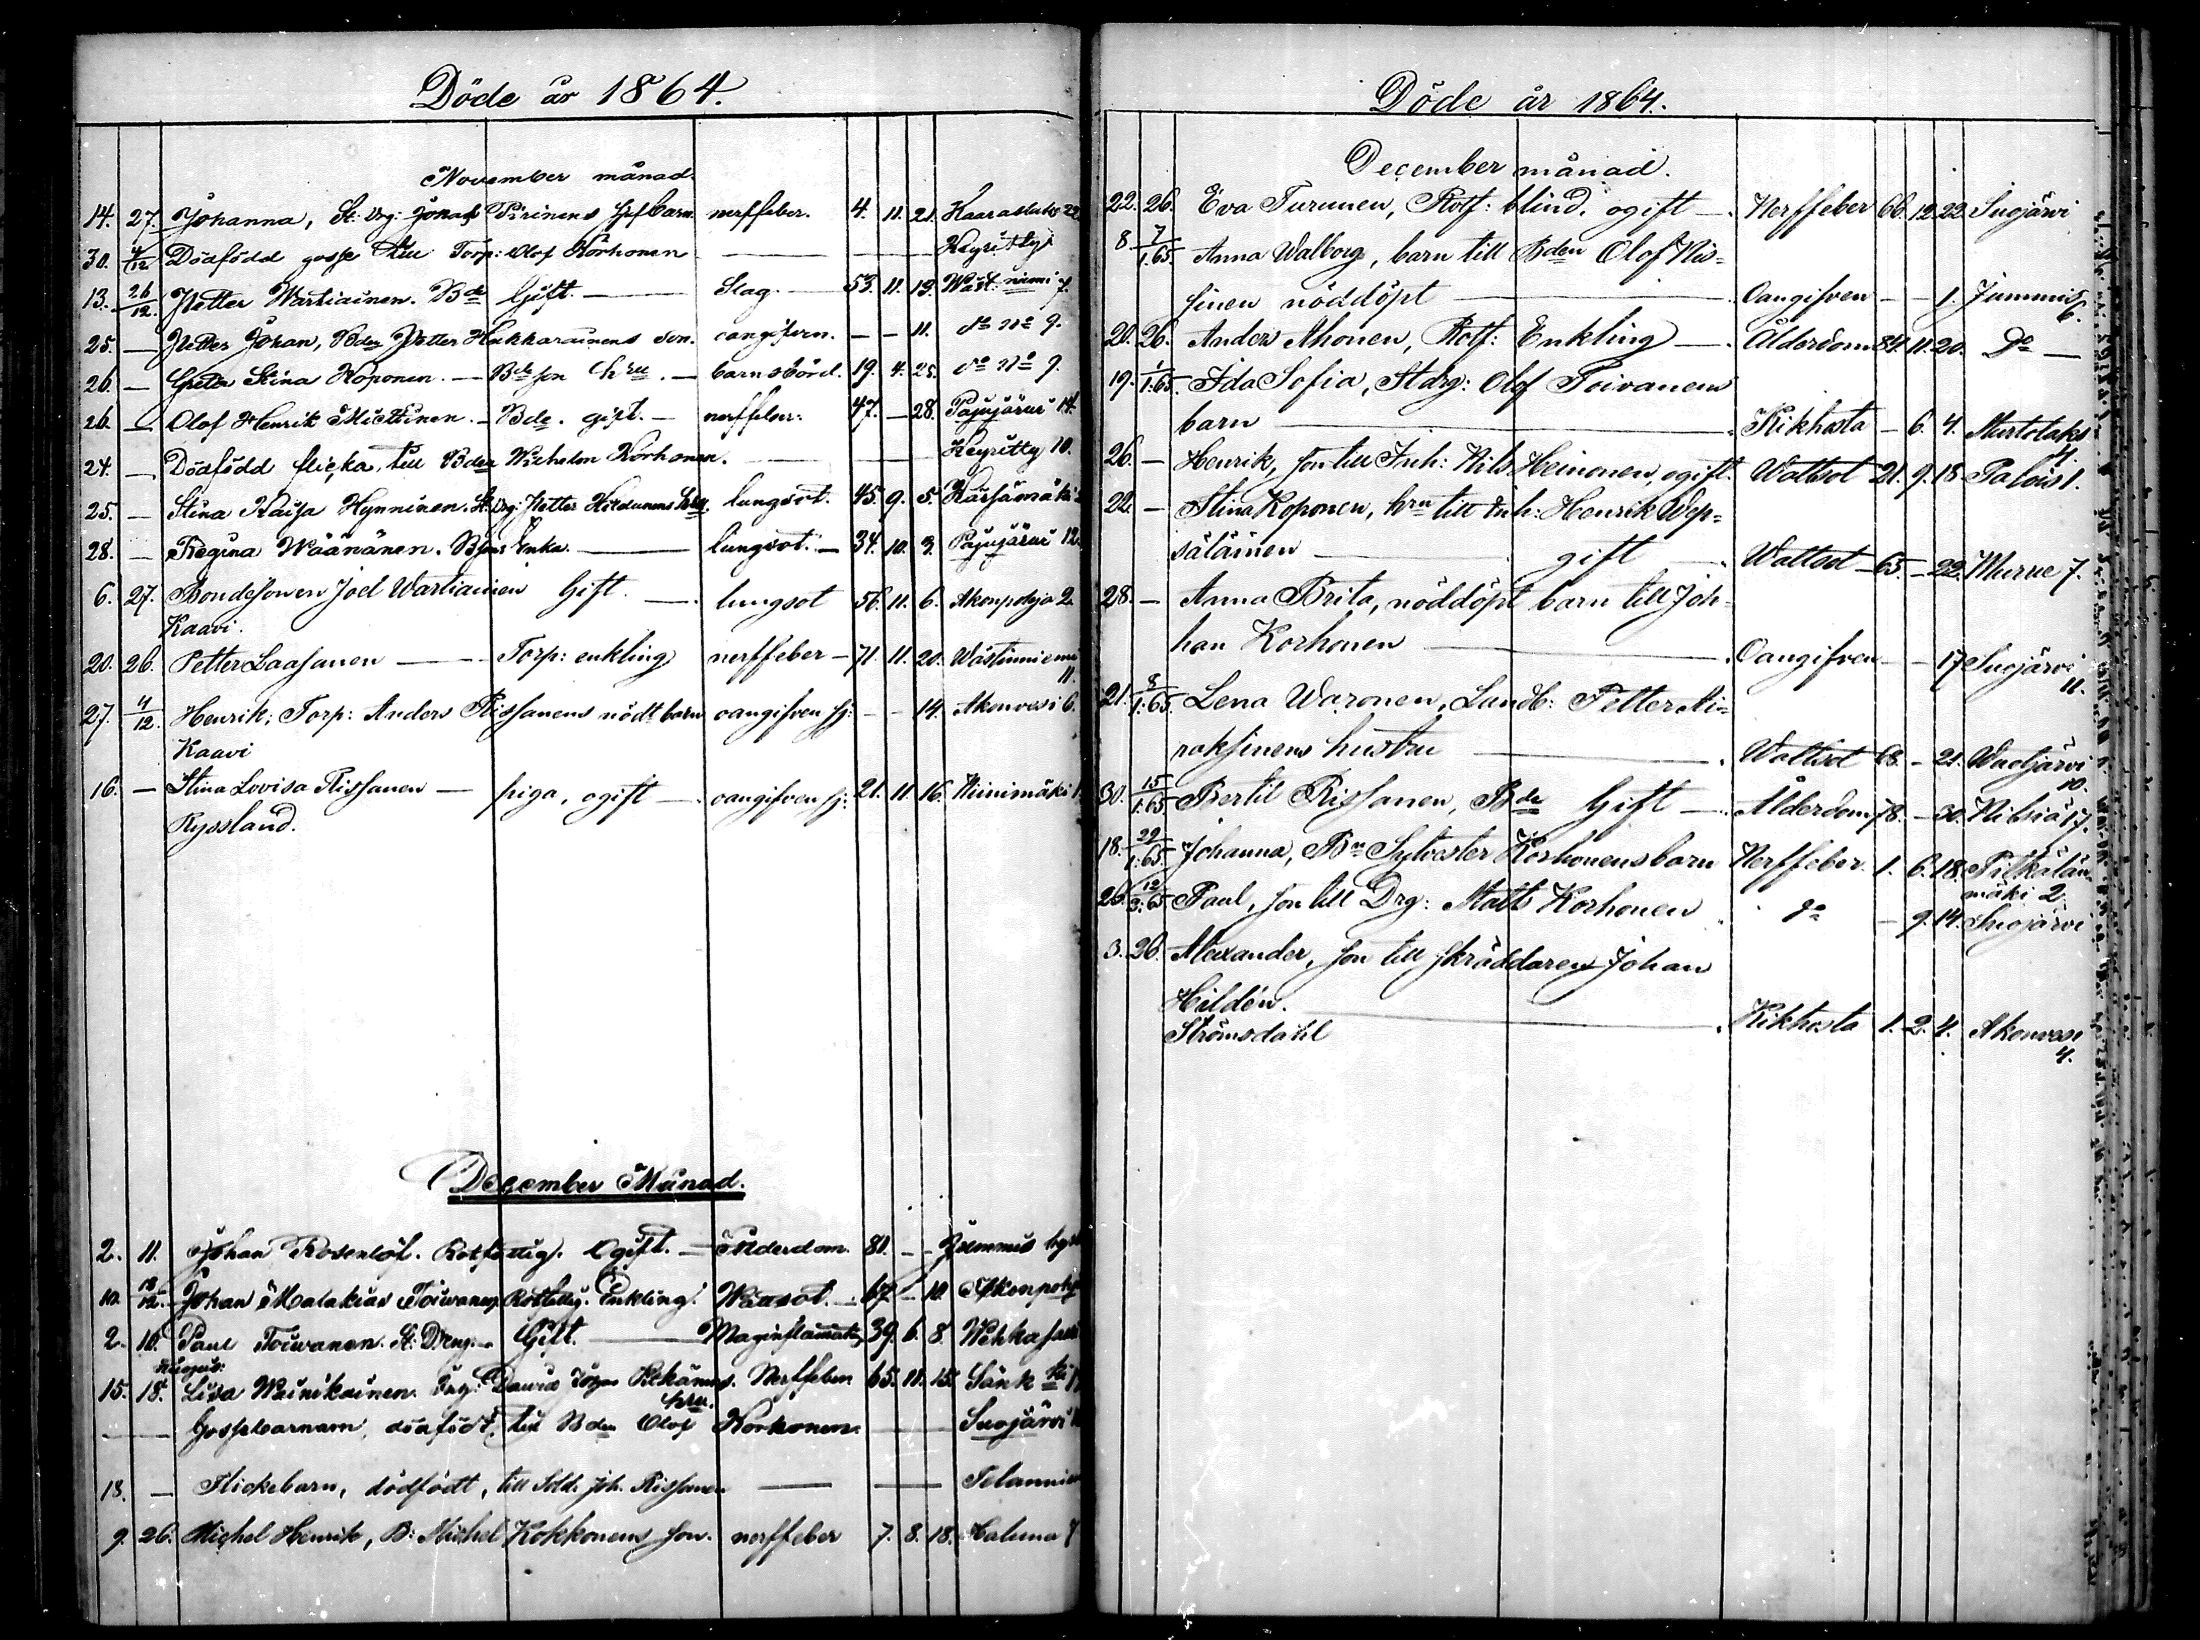 Döde år 1864.
November månad.
14. 27. Johanna, St: drg: Jonas Pirinens hf barn. nerffeber. 4. 11. 21. Kaaraslaks 22.
30. 4/12 Dödfödd gosse till Torp: Olof Korhonen — Keyritty
13. 26/12. Petter Wartiainen. Bde Gift. — Slag. — 53. 11. 13. Wäst: niemi 7.
25. — Petter Johan, Bden Petter Hukkarainens son. oangifven. — — 11. do No 9.
26. — Greta Stina Koponen. — Bde son hru. — barnsbörd. 19. 4. 25. do No 9.
26. — Olof Henrik Miettinen. — Bde. gift. — nerffeber: 47. — 28. Pajujärvi 14.
24. — Dödfödd flicka, till Bden Wilhelm Korhonen. — Keyritty 10.
25. — Stina Kaisa Hynninen. St: drg: Petter hru. lungsot. 45. 9. 5. Kärsämäki
28. — Regina Wäänänen. Enka. — lungsot. — 34. 10. 3. Pajujärvi 12.
6. 27. Bondesonen Joel Wartiainen Gift. — lungsot 56. 11. 6. Akonpohja 2.
Kaavi.
20. 26. Petter Laasanen — Torp: enkling nerffeber — 71. 11. 20. Wästinniemi
11.
27. 4/12. Henrik, Torp: Anders Rissanens nödt barn oangifven sj: — — 14. Akonvesi 6.
Kaavi
16. — Stina Lovisa Rissanen — piga, ogift — oangifven sj: 21. 11. 16. Niinimäki 1
Ryssland.
December Månad.
2. 11. Johan Rosenlöf. Rotfattig. Ogift. — Ålderdom. 80. — — Jummis by
10. 18/12. Johan Malakias Toiwanen Rotfattig. Enkling. Wattsot. — 67 — 10. Akonpohja
2. 10. Paul Toiwanen. St: Dreng. — Gift. — Maginflamat. 39. 6. 8.
15. 18. Lisa Wainikainen. Drg: David hru. Nerffeber 65. 11. 15. Sänk
— — Gossebarnam, dödfödt, till Bden Olof Korhonen. — Suojärvi
18. — Flickebarn, dödfödt, till Sold. Joh. Rissanen — — Telanni
9. 26. Michel Henrik, B: Michel Kokkonens son. nerffeber 7. 8. 18. Haluna 7
Döde år 1864.
December månad.
22. 26. Eva Turunen, Rotf: blind, ogift —. Nerffeber 66. 12. 22. Suojärvi
8. 7/1.65. Anna Walborg, barn till Bden Olof Nis=
sinen nöddöpt —. Oangifven — — 1. Jummis
6.
20. 26. Anders Ahonen, Rotf: Enkling —. Ålderdom 84. 11. 20. Do —
19. 1/1.65. Ida Sofia, St drg: Olof Toivanens
barn —. Kikhosta — 6. 4. Murtolaks
4.
26. — Henrik, son till Inh: Nils Heinonen, ogift. Wattsot 21. 9. 18. Palois 1.
22. — Stina Koponen, hru till Inh: Henrik Wep=
säläinen — gift —. Wattsot 65. — 22. Murue 7.
28. — Anna Brita, nöddöpt barn till Joh=
han Korhonen —. Oangifven — — 17 Suojärvi
11.
21. 8/1.65. Lena Waronen, Landb: Petter Ai=
raksinens hustru —. Wattsot 68. — 21. Waotjärvi
10.
30. 15/1.65. Bertil Rissanen, Bde Gift —. Ålderdom 78. — 30. Nilsiä 17.
18. 29/1.65. Johanna, Bn Sylvester Korhonens barn Nerffeber. 1. 6. 18. Pitkälän
mäki 2.
26. 12/3.65. Paul, son till Drg: Matts Korhonen. do — 9. 14. Suojärvi
3. 26. Alexander, son till skräddaren Johan
Hildén. —. Kikhosta 1. 2. 4. Akonvesi
4.
Strömsdahl